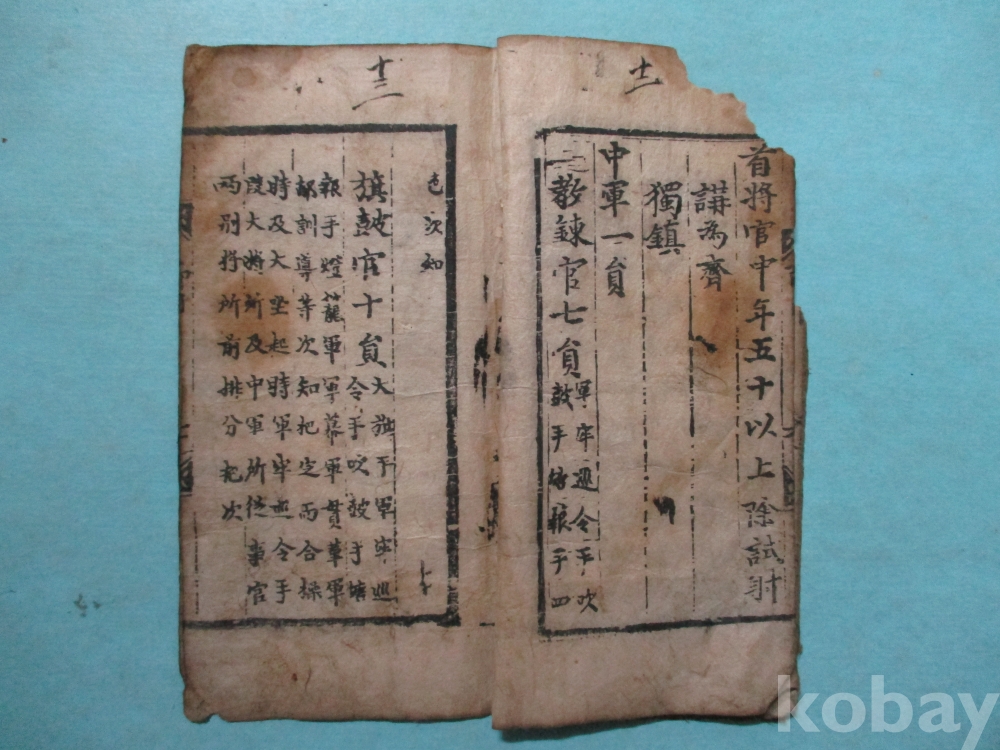 十二
首將官中年五十以上除試射
講為齊
獨鎮
中軍一員
教鍊官七員
軍牢巡令手吹
鼓手塘報手四
十三
色次知
旗鼓官十員
大旗手軍牢巡
令手吹鼓手塘
報手燈籠軍軍幕軍貫革軍
都訓導等次知把定而合操
時及大坐起時軍牢巡令手
段大將所及中軍所從事官
兩別將所前排分把次
kobay